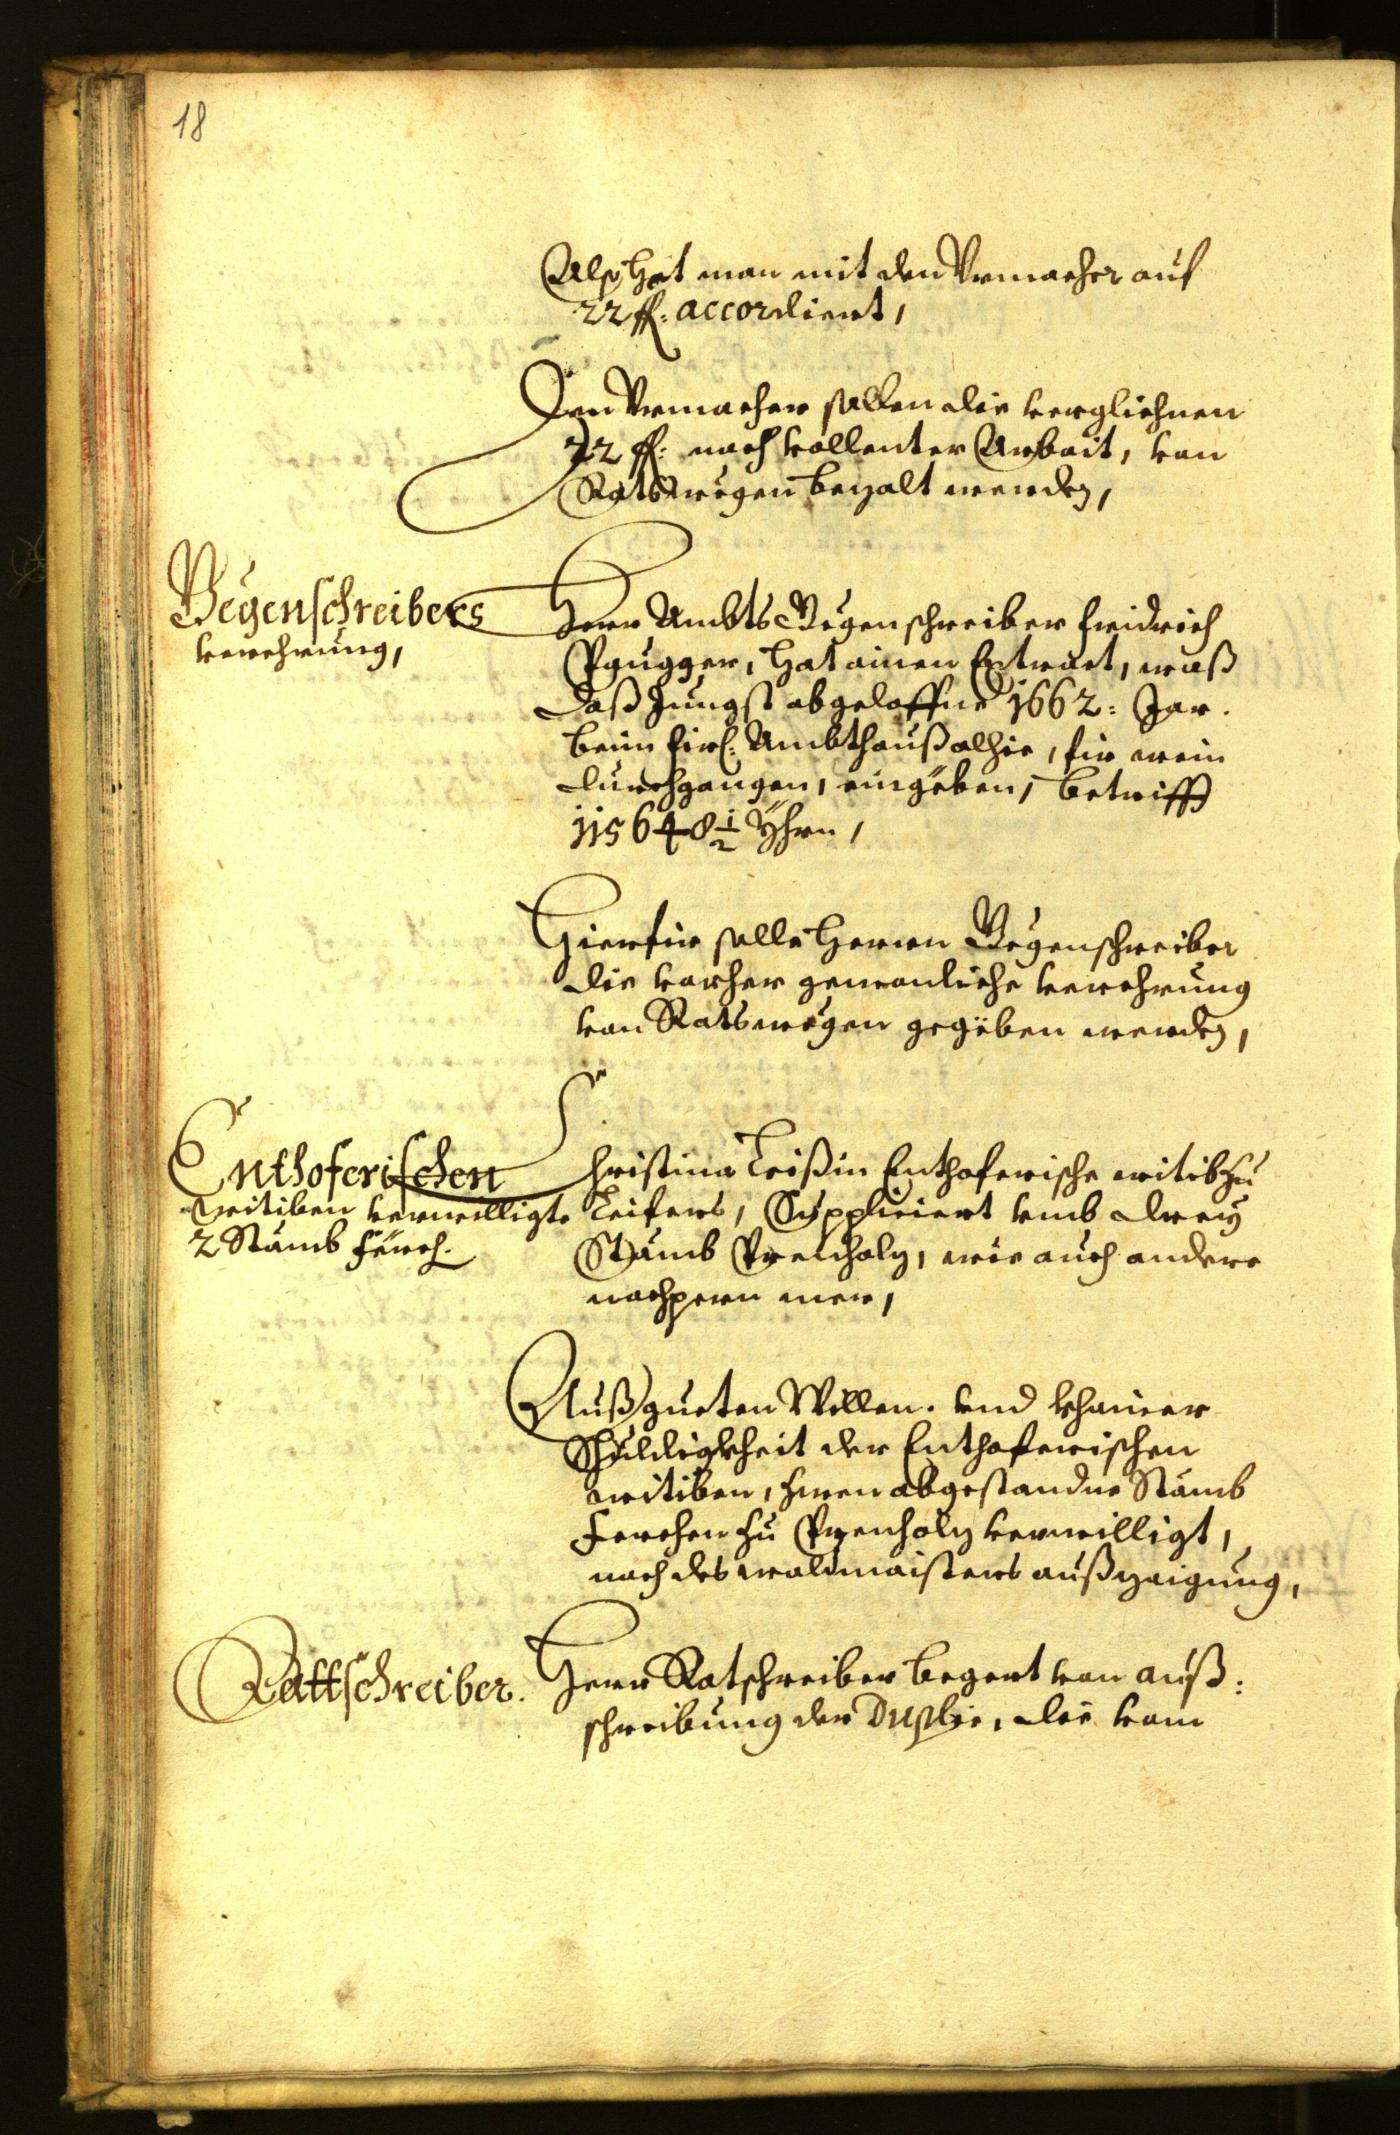 18
Also hat man mit den Vrmacher auf
22 fl: accordiert,
Den Vrmacher sollen die verglichnen
22 fl: nach vollenter Arbait, von
Rats wegen bezalt werden,
Gegenschreibers
verehrung,
Herr Ambts Gegenschreiber Fridrich
hat ainen Extract, waß
daß Jüngst abgeloffne 1662: Jar.
beim Fürl: Ambthauß alhie, für wein
durchgangen, eingeben, betrifft
115648 1/2 Yhrn,
Hierfür solle Herrn Gegenschreiber
die vorher gewonliche verehrung
von Rats wegen gegeben werden,
Enthoferischen
witiben verwilligte
2 Stämb Förch.
Christina Enthoferische witib zu
Leifers, Suppliciert vmb drey
Stämb Prenholz, wie auch andere
nachpern mer,
Auß gueten Willen. vnd khainer
Schuldigkheit der Enthoferischen
witiben, zwen abgestandne Stämb
Ferchen zu Prenholz verwilligt,
nach des waldmaisters außzaigung,
Rattschreiber.
Herr Ratschreiber begert von auß:
schreibung der Duplic, die vom